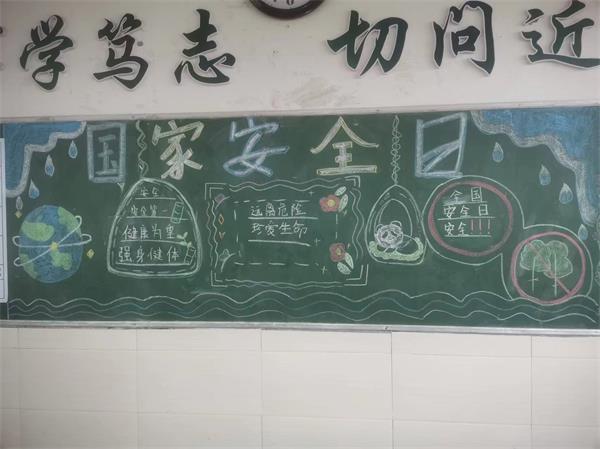 学笃志 切问近
国家安全日
安全
安全第一
健康为重
强身健体
远离危险
珍爱生命
全国
安全日
安全!!!